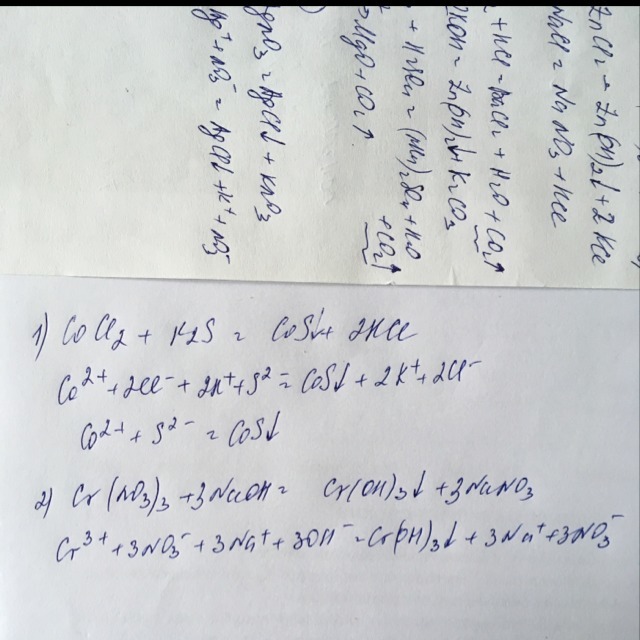 ZnCl2 → Zn(OH)2↓ + 2KCl
NaCl = NaNO3 + KCl
+ HCl = BaCl2 + H2O + CO2↑
2KOH = Zn(OH)2↓ + K2CO3
+ H2SO4 = (NH4)2SO4 + H2O
+ CO2↑
MgO + CO2↑
AgNO3 = AgCl↓ + KNO3
Ag⁺ + NO3⁻ = AgCl↓ + K⁺ + NO3⁻
1) CoCl2 + K2S = CoS↓ + 2KCl
Co²⁺ + 2Cl⁻ + 2K⁺ + S²⁻ = CoS↓ + 2K⁺ + 2Cl⁻
Co²⁺ + S²⁻ = CoS↓
2) Cr(NO3)3 + 3NaOH = Cr(OH)3↓ + 3NaNO3
Cr³⁺ + 3NO3⁻ + 3Na⁺ + 3OH⁻ = Cr(OH)3↓ + 3Na⁺ + 3NO3⁻